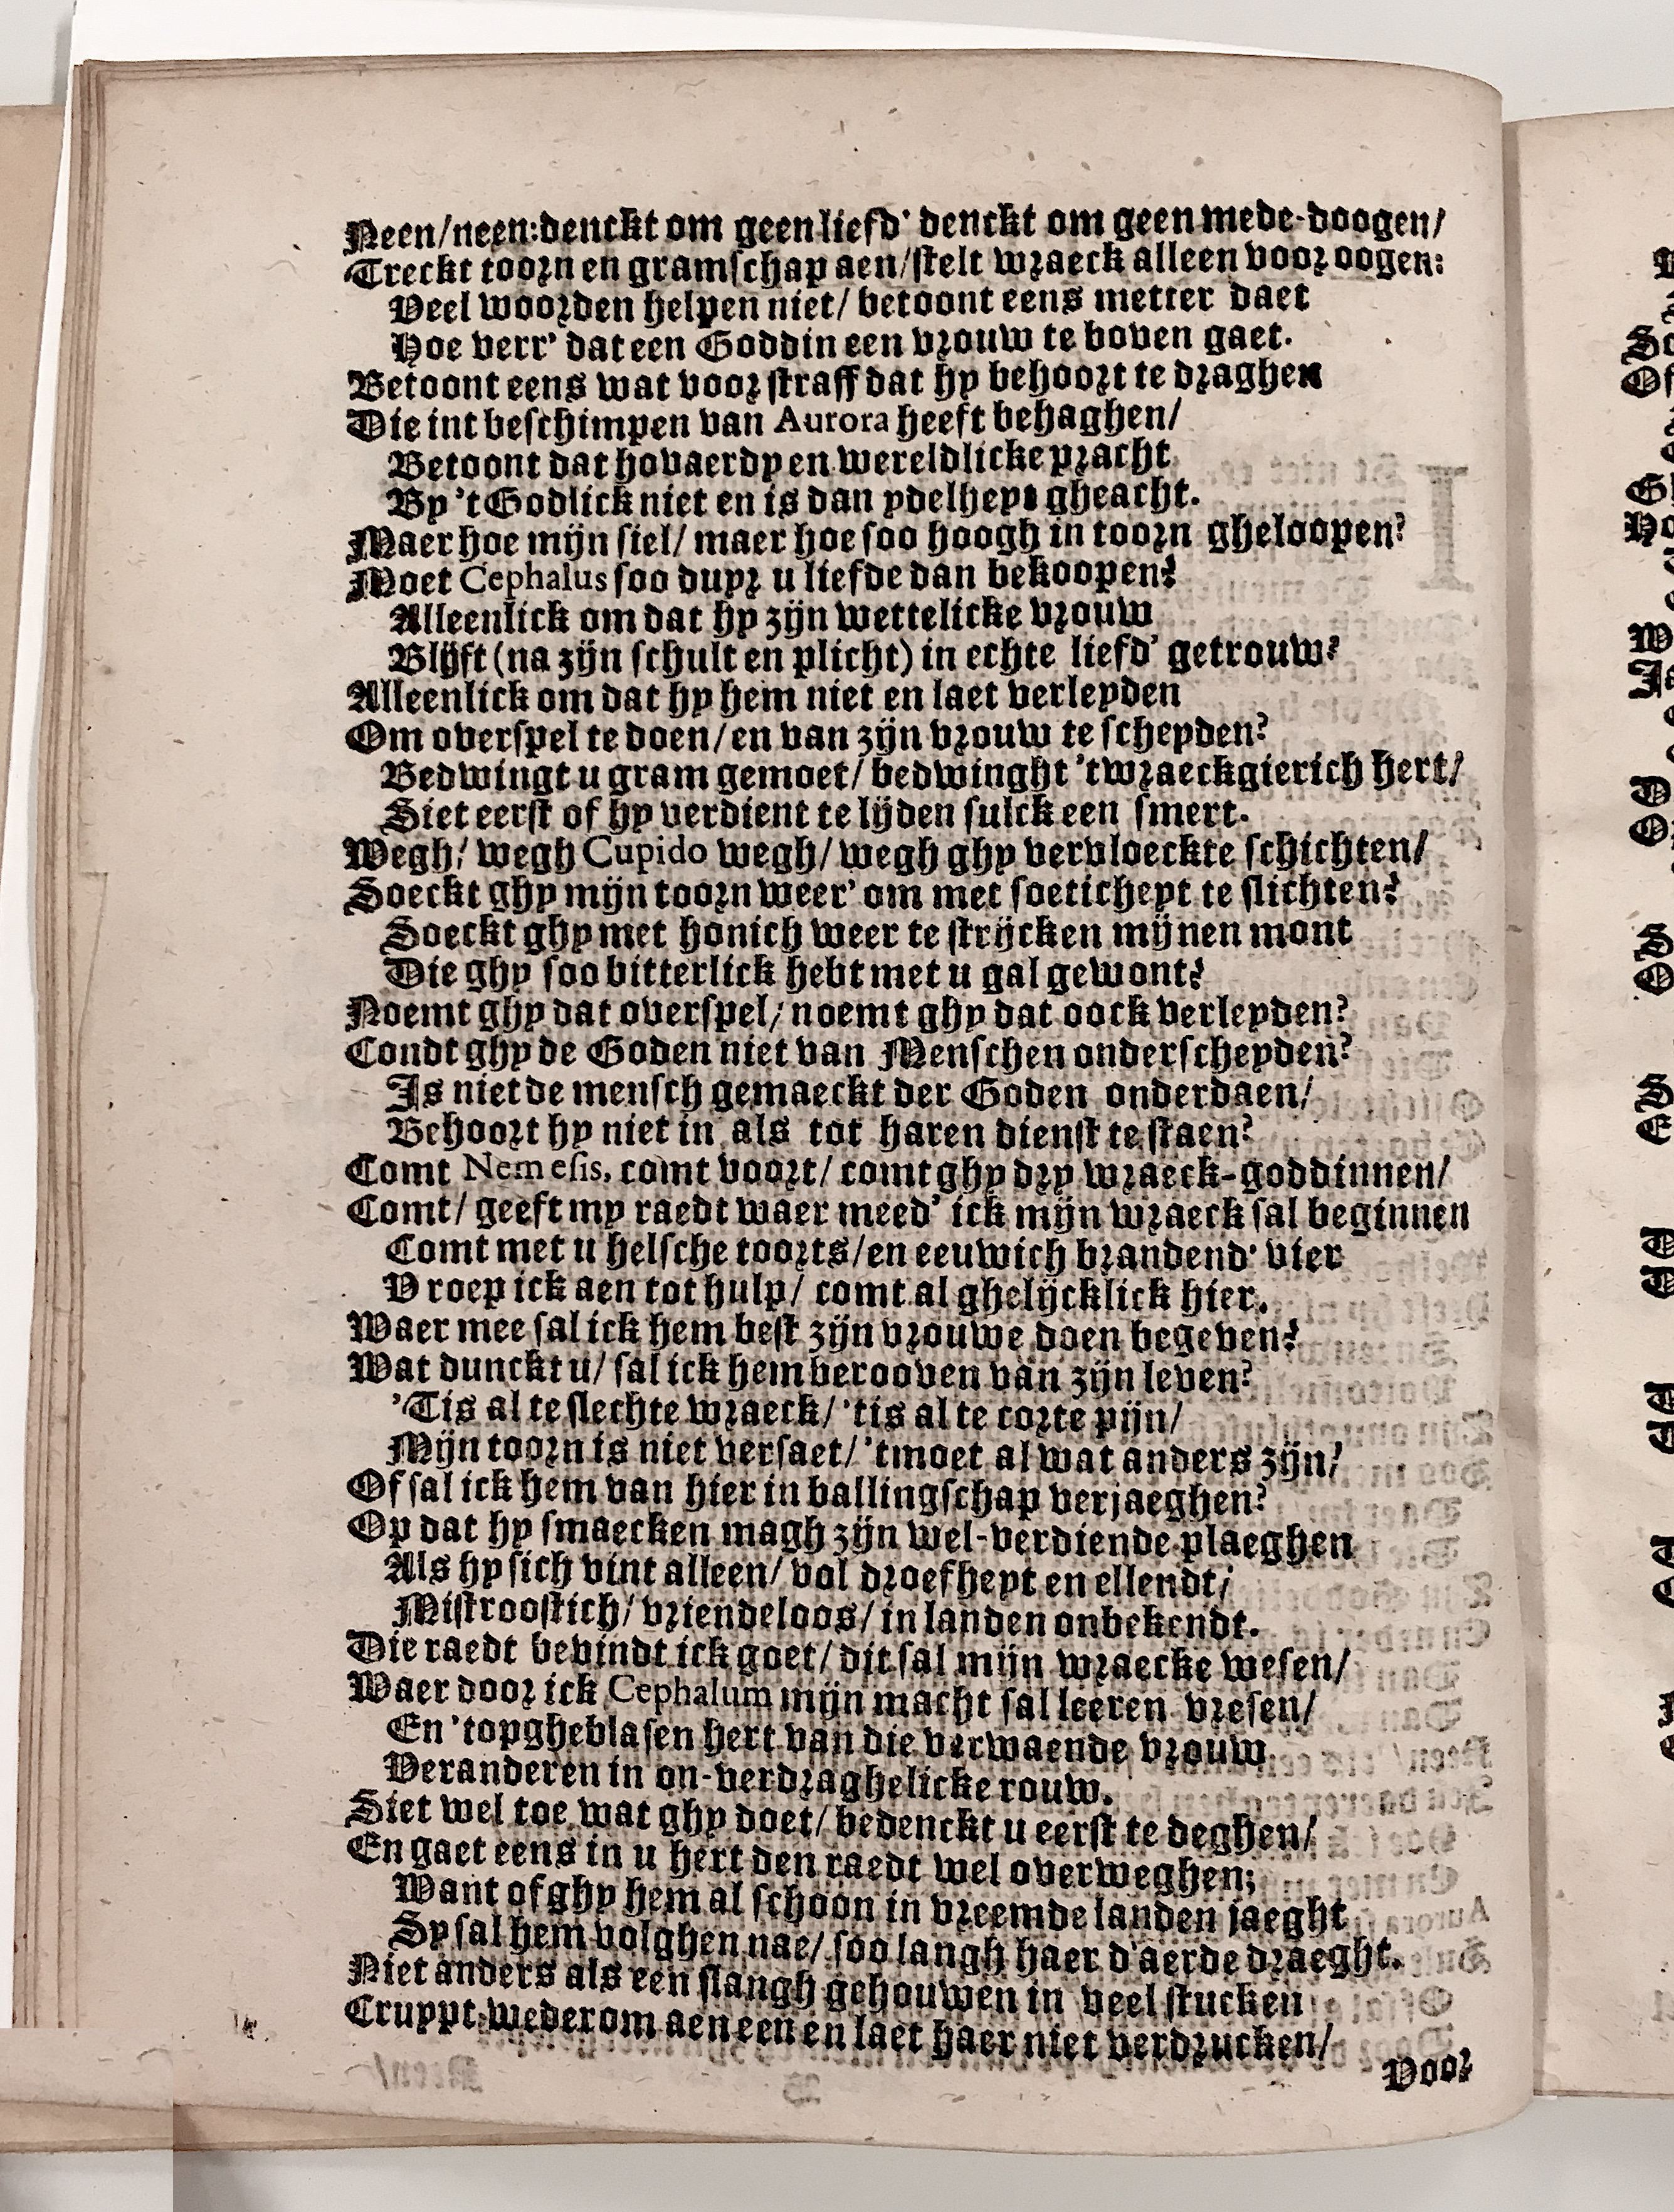 Neen/neen:denckt om geen liefd' denckt om geen mede-doogen/
Treckt toorn en gramschap aen/stelt wraeck alleen voor oogen:
Veel woorden helpen niet/ betoont eens metter daet
Hoe verr' dat een Goddin een vrouw te boven gaet.
Betoont eens wat voor straff dat hy behoort te draghen
Die int beschimpen van Aurora heeft behaghen/
Betoont dat hovaerdy en wereldlicke pracht
By 't Godlick niet en is dan ydelheyt gheacht.
Maer hoe mijn siel/ maer hoe soo hoogh in toorn gheloopen?
Moet Cephalus soo duyr u liefde dan bekoopen?
Alleenlick om dat hy zijn wettelicke vrouw
Blijft (na zijn schult en plicht) in echte liefd' getrouw?
Alleenlick om dat hy hem niet en laet verleyden
Om overspel te doen/en van zijn vrouw te scheyden?
Bedwingt u gram gemoet/ bedwinght 'twraeckgierich hert/
Siet eerst of hy verdient te lijden sulck een smert.
Wegh/ wegh Cupido wegh/ wegh ghy vervloeckte schichten/
Soeckt ghy mijn toorn weer' om met soeticheyt te slichten?
Soeckt ghy met honich weer te strijcken mijnen mont
Die ghy soo bitterlick hebt met u gal gewont?
Noemt ghy dat overspel/ noemt ghy dat oock verleyden?
Condt ghy de Goden niet van Menschen onderscheyden?
Is niet de mensch gemaeckt der Goden onderdaen/
Behoort hy niet in als tot haren dienst te staen?
Comt Nemesis, comt voort/ comt ghy dry wraeck-goddinnen/
Comt/ geeft my raedt waer meed' ick mijn wraeck sal beginnen
Comt met u helsche toorts/en eeuwich brandend' vier
V roep ick aen tot hulp/ comt al ghelijcklick hier.
Waer mee sal ick hem best zijn vrouwe doen begeven?
Wat dunckt u/ sal ick hem berooven van zijn leven?
'Tis al te slechte wraeck/ 'tis al te corte pijn/
Mijn toorn is niet versaet/ 'tmoet al wat anders zijn/
Of sal ick hem van hier in ballingschap verjaeghen?
Op dat hy smaecken magh zijn wel-verdiende plaeghen
Als hy sich vint alleen/ vol droefheyt en ellendt/
Mistroostich/ vriendeloos/ in landen onbekendt.
Die raedt bevindt ick goet/ dit sal mijn wraecke wesen/
Waer door ick Cephalum mijn macht sal leeren vresen/
En 'topgheblasen hert van die verwaende vrouw
Veranderen in on-verdraghelicke rouw.
Siet wel toe wat ghy doet/ bedenckt u eerst te deghen/
En gaet eens in u hert den raedt wel overweghen;
Want of ghy hem al schoon in vreemde landen jaeght
Sy sal hem volghen nae/ soo langh haer d'aerde draeght.
Niet anders als een slangh gehouwen in veel stucken
Cruypt wederom aen een en laet haer niet verdrucken/
Voor